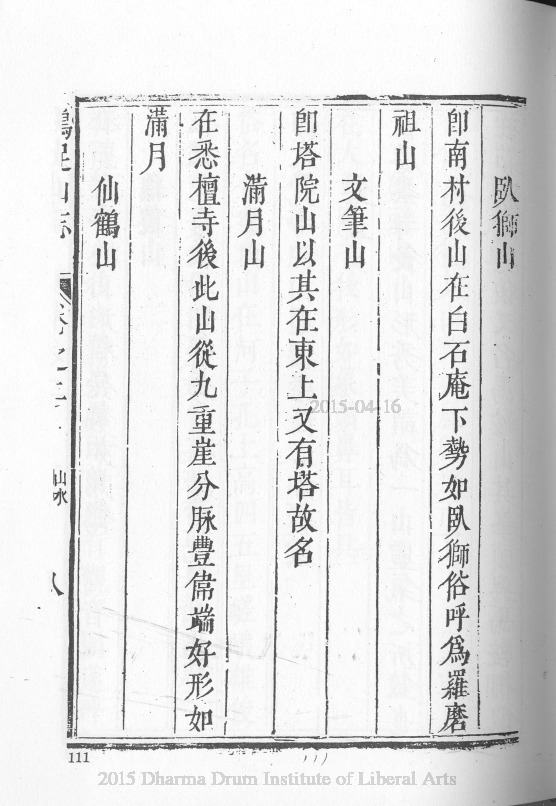 臥獅山
卽南村後山在白石庵下勢如臥獅俗呼爲羅磨
祖山
文筆山
卽塔院山以其在東上又有塔故名
滿月山
在悉檀寺後此山從九重崖分脉豐偉端好形如
滿月
仙鶴山
足山志
卷之二
山水
八
111
2015-04-16
2015 Dharma Drum Institute of Liberal Arts